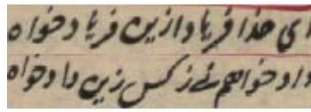 ای خدا فریاد ازین فریاد خواه
داد خواهم نی ز کس زین داد خواه